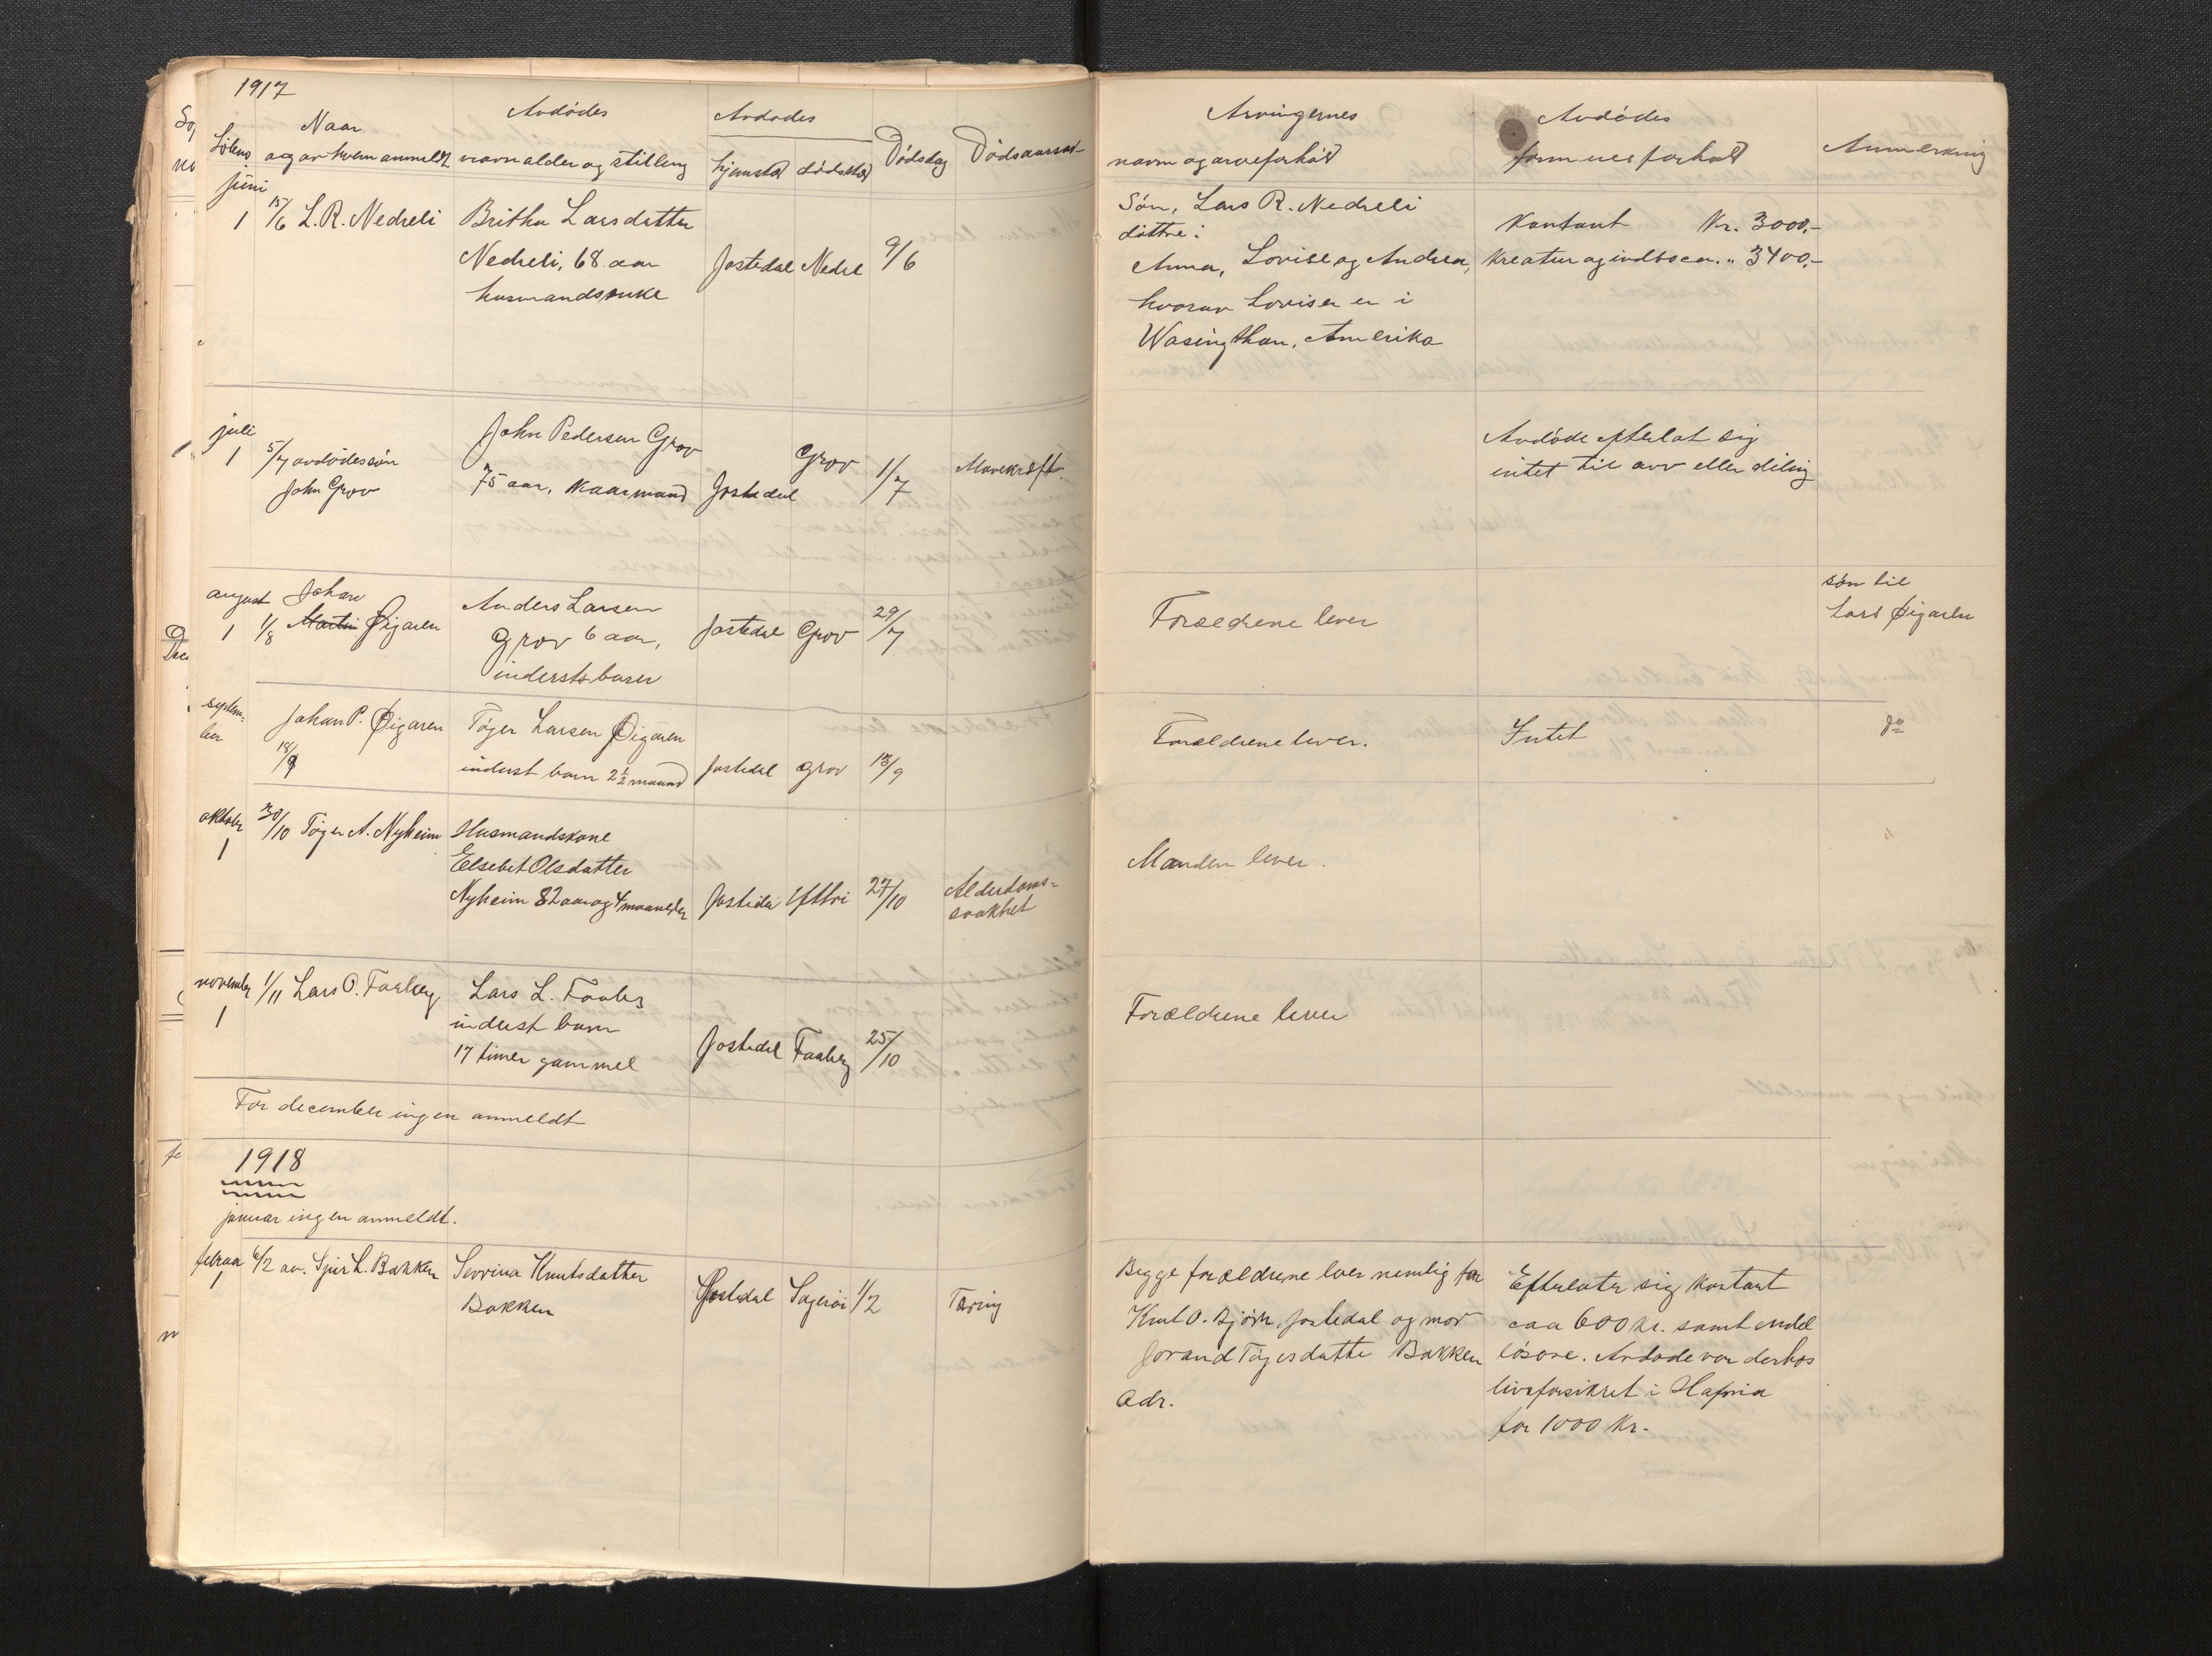 1917
Løbeno.
Naar
og av hvem anmeldt
Avdødes
navn alder og stilling
Avdødes
hjemsted dødssted
Dødsdag
Dødsaarsak
juni
1 15/6 L. R. Nedreli
Britha Larsdatter
Nedreli, 68 aar
husmandsenke
Jostedal Nedrel 9/6
juli
1 5/7 avdødes søn
John Grov
John Pedersen Grov
75 aar, Kaarmand Jostedal
Grov 1/7 Mavekræft
august
1 1/8 Johan
Martin Øigaren
Anders Larsen
Grov 6 aar,
inderstsbarn
Jostedal Grov 29/7
septem-
ber
Johan P. Øigaren
18/9
Tøger Larsen Øigaren
inderst barn 2½ maaned
Jostedal Grov 18/9
oktober
1
30/10 Tøger A. Nyheim
Husmandskone
Elsebet Olsdatter
Nyheim 82 aar og 4 maaneder
Jostedal 27/10
Alderdoms-
svakhet
november
1
1/11 Lars O. Faaberg
Lars L. Faaberg
inderst barn
17 timer gammel
Jostedal Faaberg 25/10
For december ingen anmeldt
1918
januar ingen anmeldt.
februar
1
6/2 av. Sjur L. Bakken
Severina Knutsdatter
Bakken
Jostedal 1/2 Tæring
Arvingernes
navn og arveforhold
Avdødes
formuesforhold
Anmerkning
Søn, Lars R. Nedreli
døttre:
Anna, Lovise og Andrea,
hvorav Lovise er i
Wasingthon, Amerika
Kontant Kr. 3000,-
Kreatur og indbo ca. " 3400,-
Avdøde efterlot sig
intet til arv eller deling
Forældrene lever
søn til
Lars Øigaren
Forældrene lever.
Intet
do
Manden lever.
Forældrene lever
Begge forældrene lever nemlig far
Knut O. Bjørk, Jostedal og mor
Jorand Tøgersdatter Bakken
Adr.
Efterlater sig kontant
caa 600 kr. samt endel
løsøre. Avdøde var derhos
livsforsikret i Hafnia
for 1000 kr.